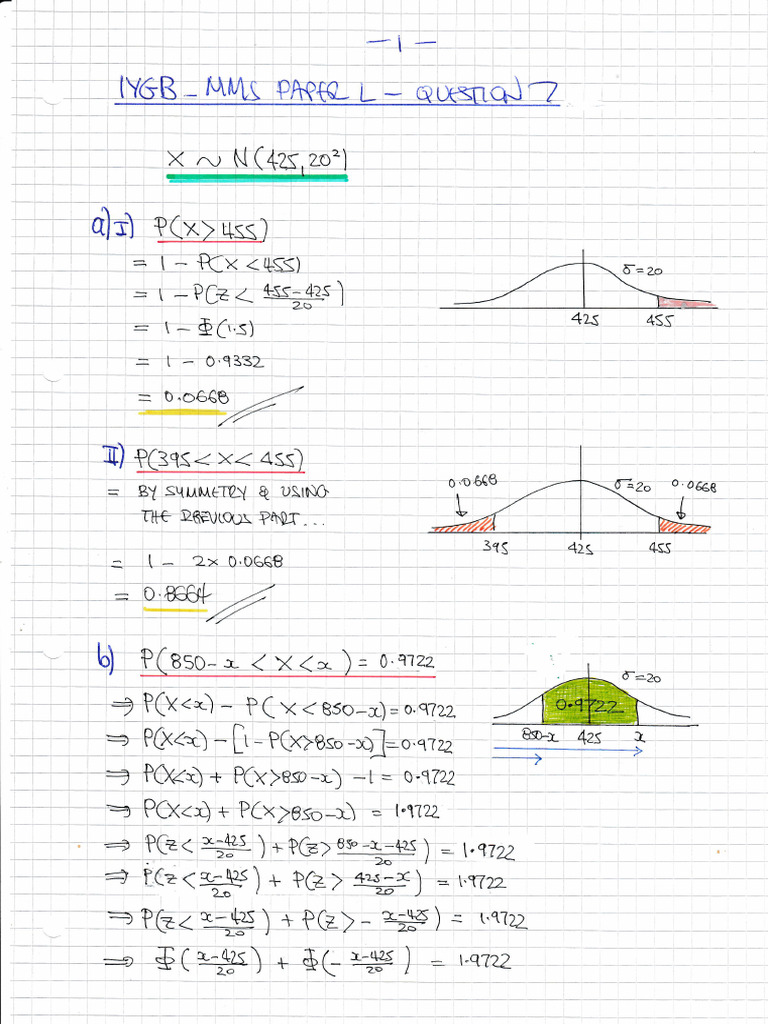 - 1 -
IYGB - MMS PAPER L - QUESTION 7
X ~ N(425, 20²)
a) I) P(X > 455)
= 1 - P(X < 455)
= 1 - P(Z < (455-425)/20)
= 1 - Φ(1.5)
= 1 - 0.9332
= 0.0668
σ=20
425 455
II) P(395 < X < 455)
= BY SYMMETRY & USING
THE PREVIOUS PART...
= 1 - 2 x 0.0668
= 0.8664
0.0668 σ=20 0.0668
395 425 455
b) P(850-x < X < x) = 0.9722
⇒ P(X<x) - P(X < 850-x) = 0.9722
⇒ P(X<x) - [1 - P(X>850-x)] = 0.9722
⇒ P(X<x) + P(X>850-x) - 1 = 0.9722
⇒ P(X<x) + P(X>850-x) = 1.9722
⇒ P(Z < (x-425)/20) + P(Z > (850-x-425)/20) = 1.9722
⇒ P(Z < (x-425)/20) + P(Z > (425-x)/20) = 1.9722
⇒ P(Z < (x-425)/20) + P(Z > - (x-425)/20) = 1.9722
⇒ Φ((x-425)/20) + Φ(- (x-425)/20) = 1.9722
σ=20
0.9722
850-x 425 x